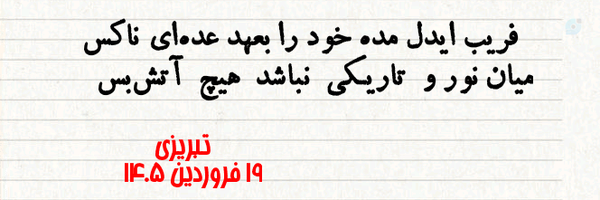 فریب ایدل مده خود را بعهد عده‌ای ناکس
میان نور و تاریکی نباشد هیچ آتش‌بس
تبریزی
۱۹ فروردین ۱۴۰۵